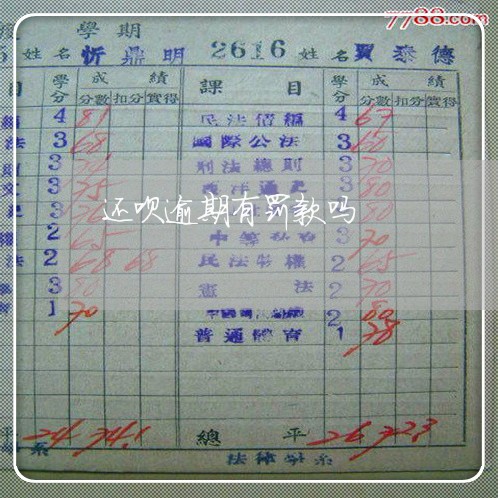 7788.com
學期
姓名 忻鼎明 2616 姓名 賈泰德
目 學分 成績 課目 學分 成績
分數 扣分 實得 分數 扣分 實得
4 81 民法債編 4 67
法 3 68 國際公法 3 60
3 刑法總則 3 70
3 75 3 80
还呗逾期有罚款吗
3 3 80
2 65 3 70
法 2 68 68 民法物權 2 65
3 80 憲法 2 70
1 70 2 80
普通體育 1 78
平 24 74.1 總平 26 72.3
系 法律學系